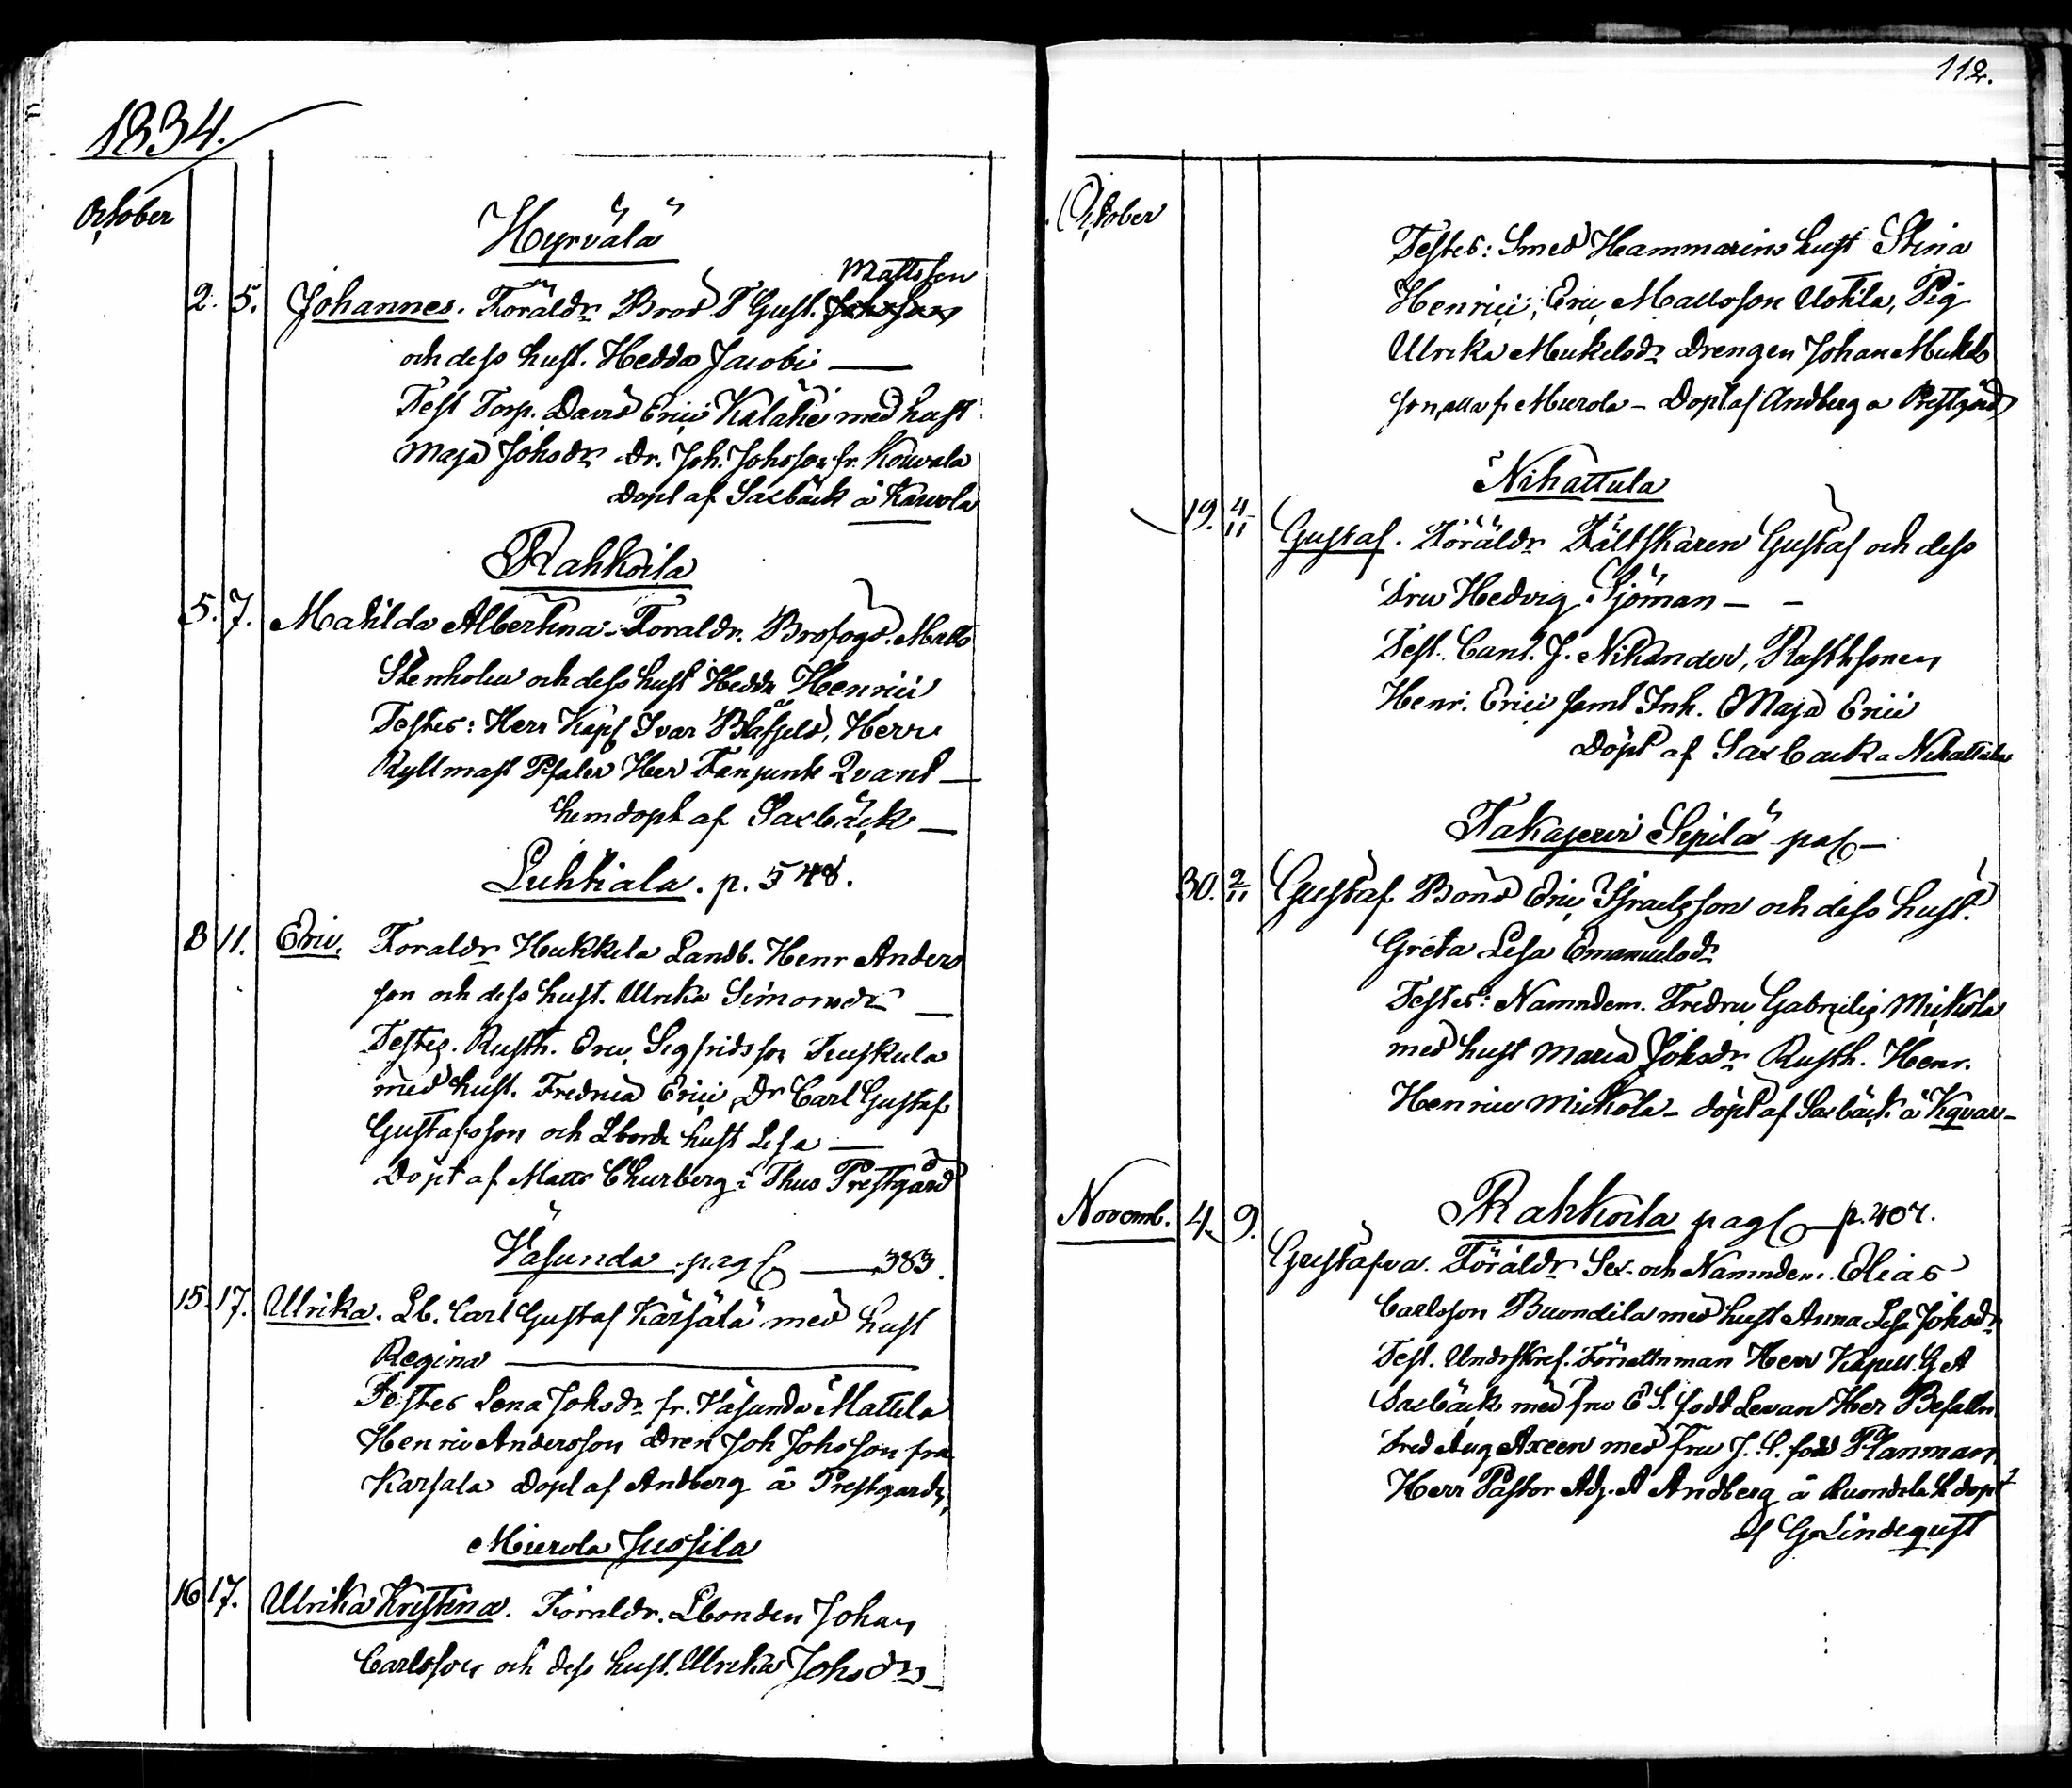 1834.
October
Hyrvälä
Mattsson
2. 5. Johannes. Föräldr Brod T Gust. Johsson
och dess hust. Hedda Jacobi —
Test Torp. David Erici Kalake med hust
Maja Johsdr Dr. Joh. Johsson fr. Kouvala
Döpt af Saxbäck å Karvola
Rahkoila
5. 7. Matilda Albertina. Föräldr. Brofogd. Matts
Stenholm och dess hust Hedda Henrici
Testes: Herr Kapt Ivar Blåfjeld, Herr
Ryttmast Pfaler Her Fanjunk Qvant —
hemdopt af Saxbäck —
Luhtiala. p. 548.
8 11. Eric. Föraldr Hukkela Landb. Henr Anders
son och dess hust. Ulrika Simonsdr —
Testes. Rusth. Eric Sigfridsson Tuskula
med hust. Fredrica Erici Dr Carl Gustaf
Gustafsson och Lbonde hust Lesa —
Döpt af Matts Churberg i Thus Prestgård
Väsunda pag — 383.
15. 17. Ulrika. Lb. Carl Gustaf Kärsälä med hust
Regina —
Testes Lena Johsdr fr. Väsunda Mattila
Henric Andersson Dren Joh Johsson fra
Karsala Döpt af Andberg å Prestgårdn
Mierola Jussila
16 17. Ulrika Kristina. Föraldr. Lbonden Johan
Carlsson och dess hust. Ulrika Johsdr —
112.
October
Testes: Smed Hammarins hust Stina
Henrici, Eric Mattsson Uotila, Pig
Ulrika Mickelsdr Drengen Johan Mickels
son, alla fr Mierola — Döpt af Andberg a Prestgård
Nihattula
19. 4/11 Gustaf. Föräldr Fältskären Gustaf och dess
Fru Hedvig Sjöman — —
Test. Cant. J. Nikander, Rusthsonen
Henr. Erici samt Inh. Maja Erici
Döpt af Saxback a Nihattula
Takajervi Sipilä pag —
30. 2/11 Gustaf Bond Eric Israelsson och dess hust.
Greta Lesa Emanuelsdr
Testes: Namndem. Fredric Gabrielis Mickola
med hust Maria Johsdr Rusth. Henr.
Henrici Mickola — döpt af Saxbäck å Kqvar —
Novemb. 4. 9. Rahkoila pag — p. 407.
Gustafva. Föräldr Sex- och Namndem. Elias
Carlsson Buondila med hust Anna Lesa Johsdr
Test. Undrskref. Förrättnman Herr Kapell. G A
Saxbäck med fru E S. född Levan Her Befalln
Fred Aug Axeen med fru J. S. född Planman
Herr Pastor Adj. A Andberg å Buondila h döpt
af G Lindeqvist